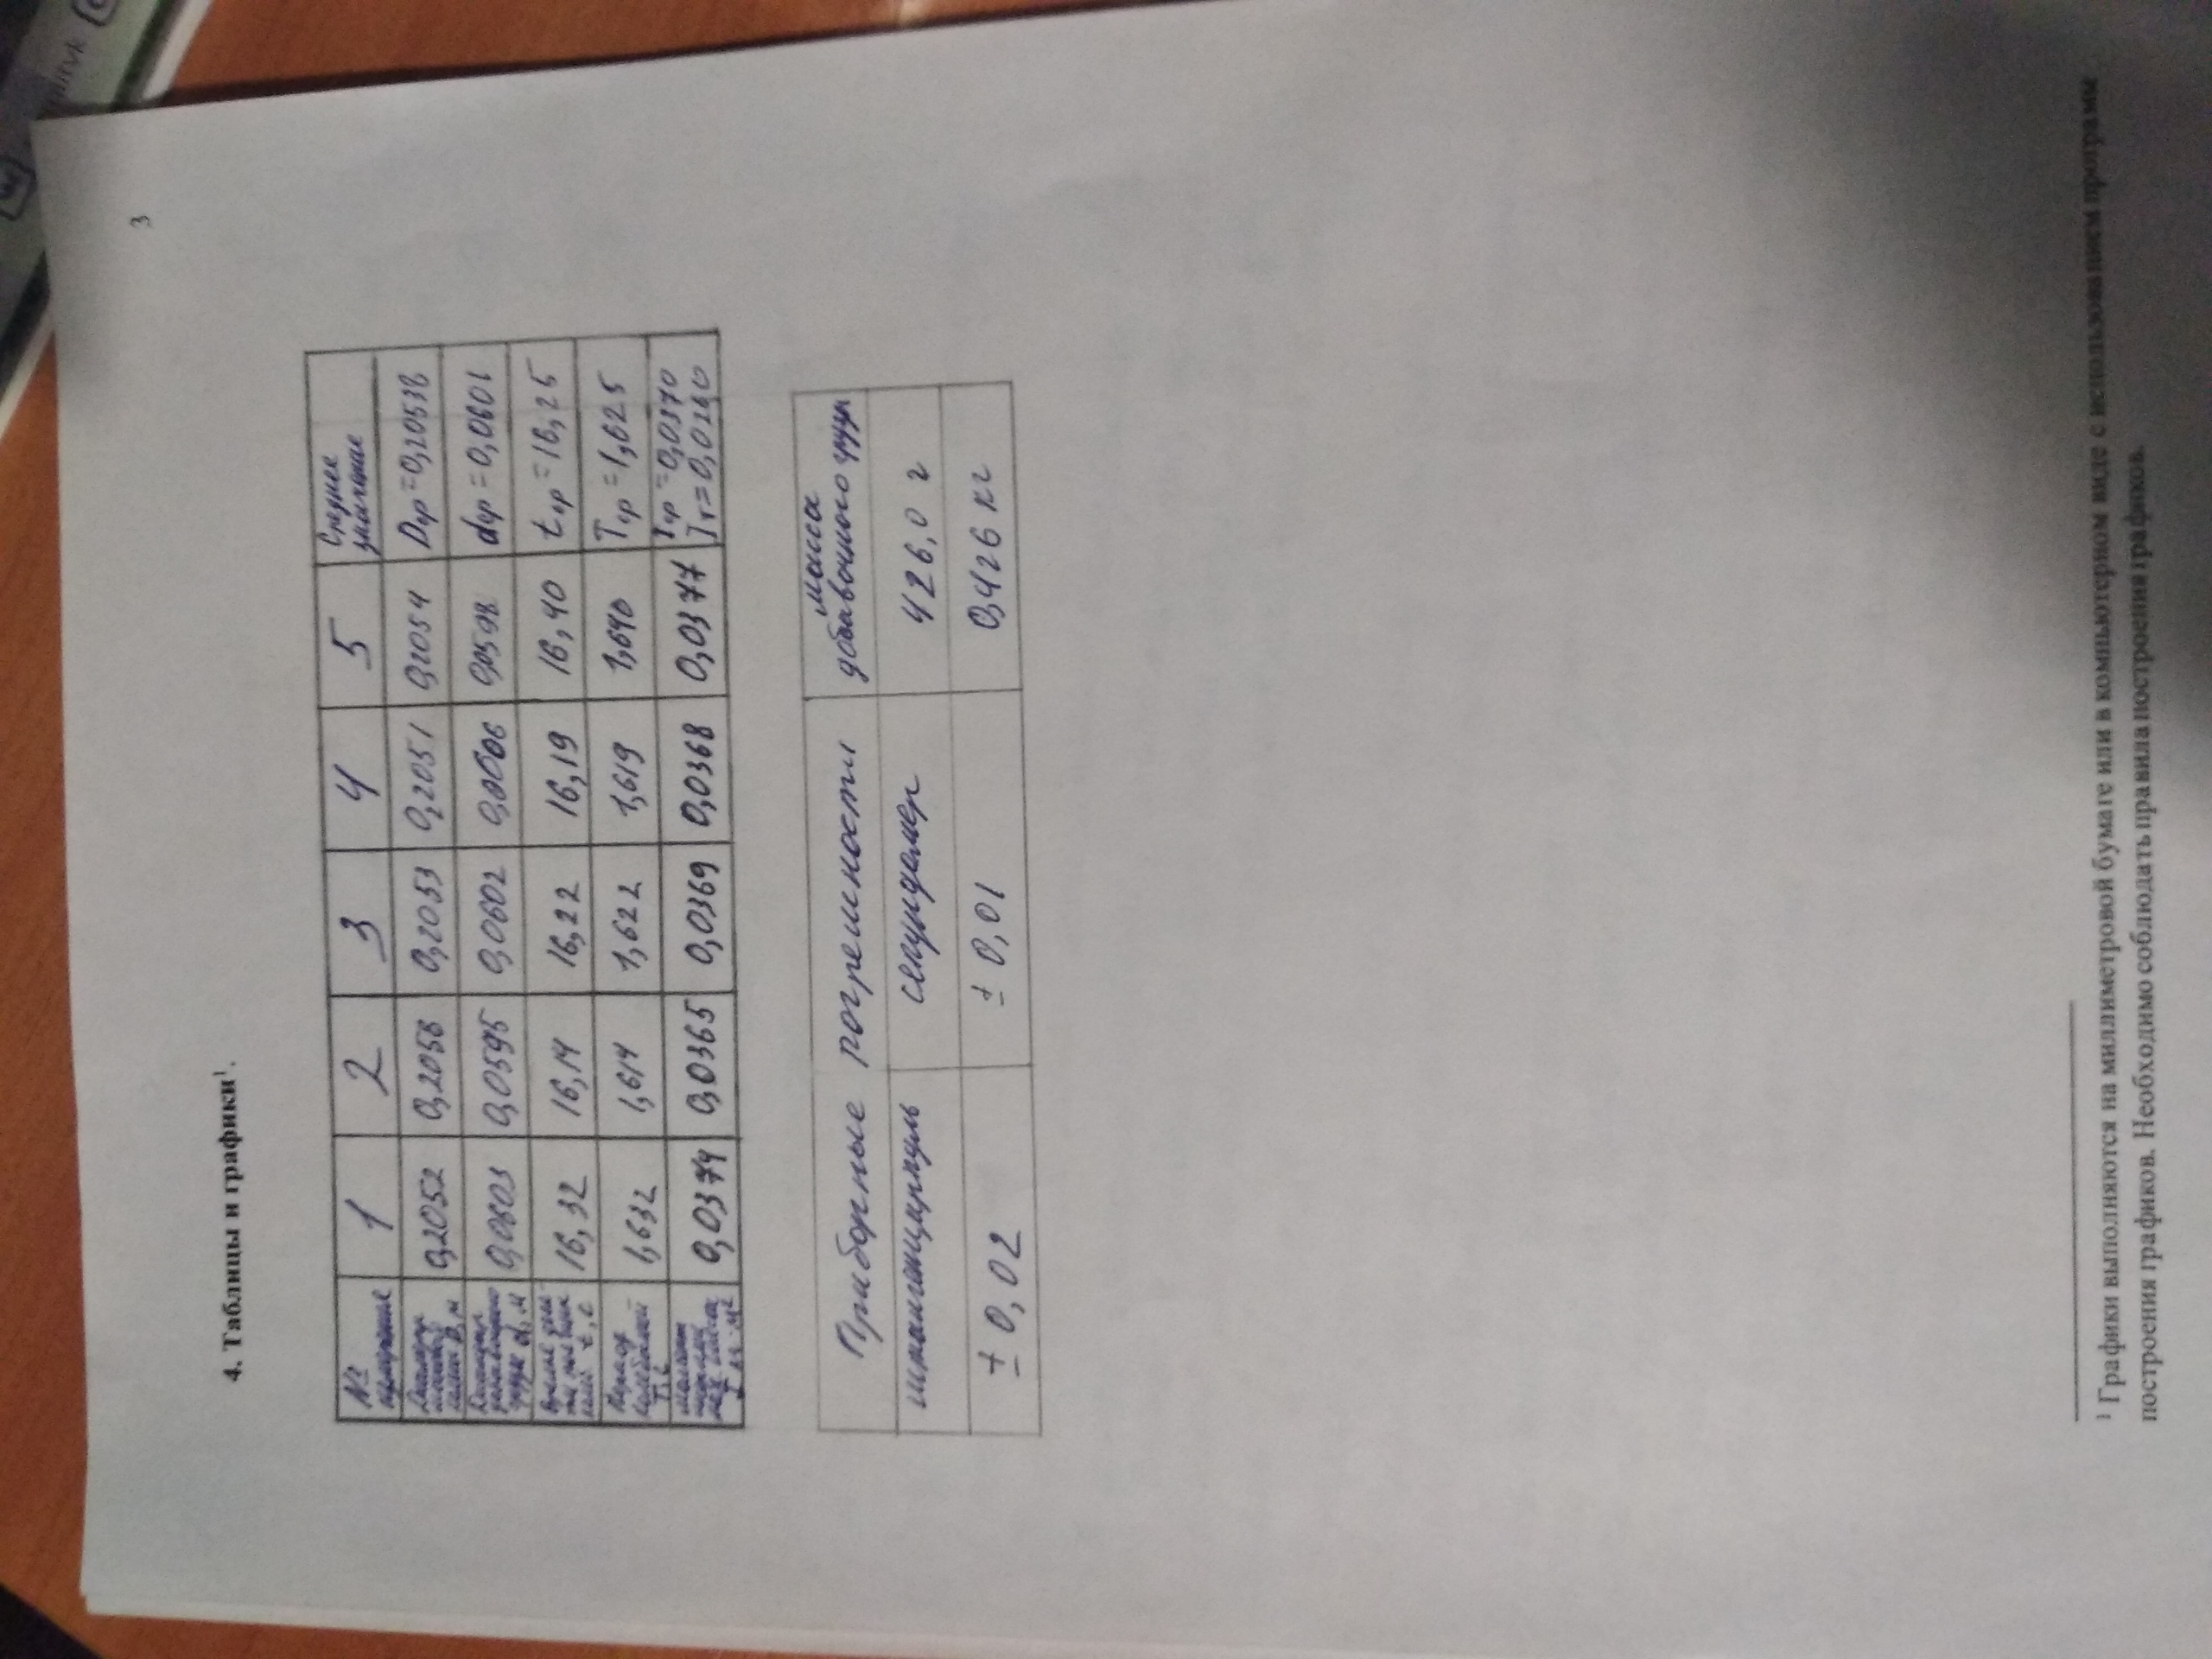 3
4. Таблицы и графики¹.
№ измерения 1 2 3 4 5 Среднее значение
D, м 0,2052 0,2056 0,2053 0,2051 0,2054 Dср = 0,20538
d, м 0,0603 0,0595 0,0602 0,0606 0,0598 dср = 0,0601
t, с 16,32 16,14 16,22 16,19 16,40 tср = 16,25
Период колебаний T, с 1,632 1,614 1,622 1,619 1,640 Tср = 1,625
0,0374 0,0365 0,0369 0,0368 0,0377 Iср = 0,0370
Приборные погрешности масса добавочного груза
штангенциркуль секундомер 426,0 г
± 0,02 ± 0,01 0,426 кг
¹ Графики выполняются на миллиметровой бумаге или в компьютерном виде с использованием программ
построения графиков. Необходимо соблюдать правила построения графиков.